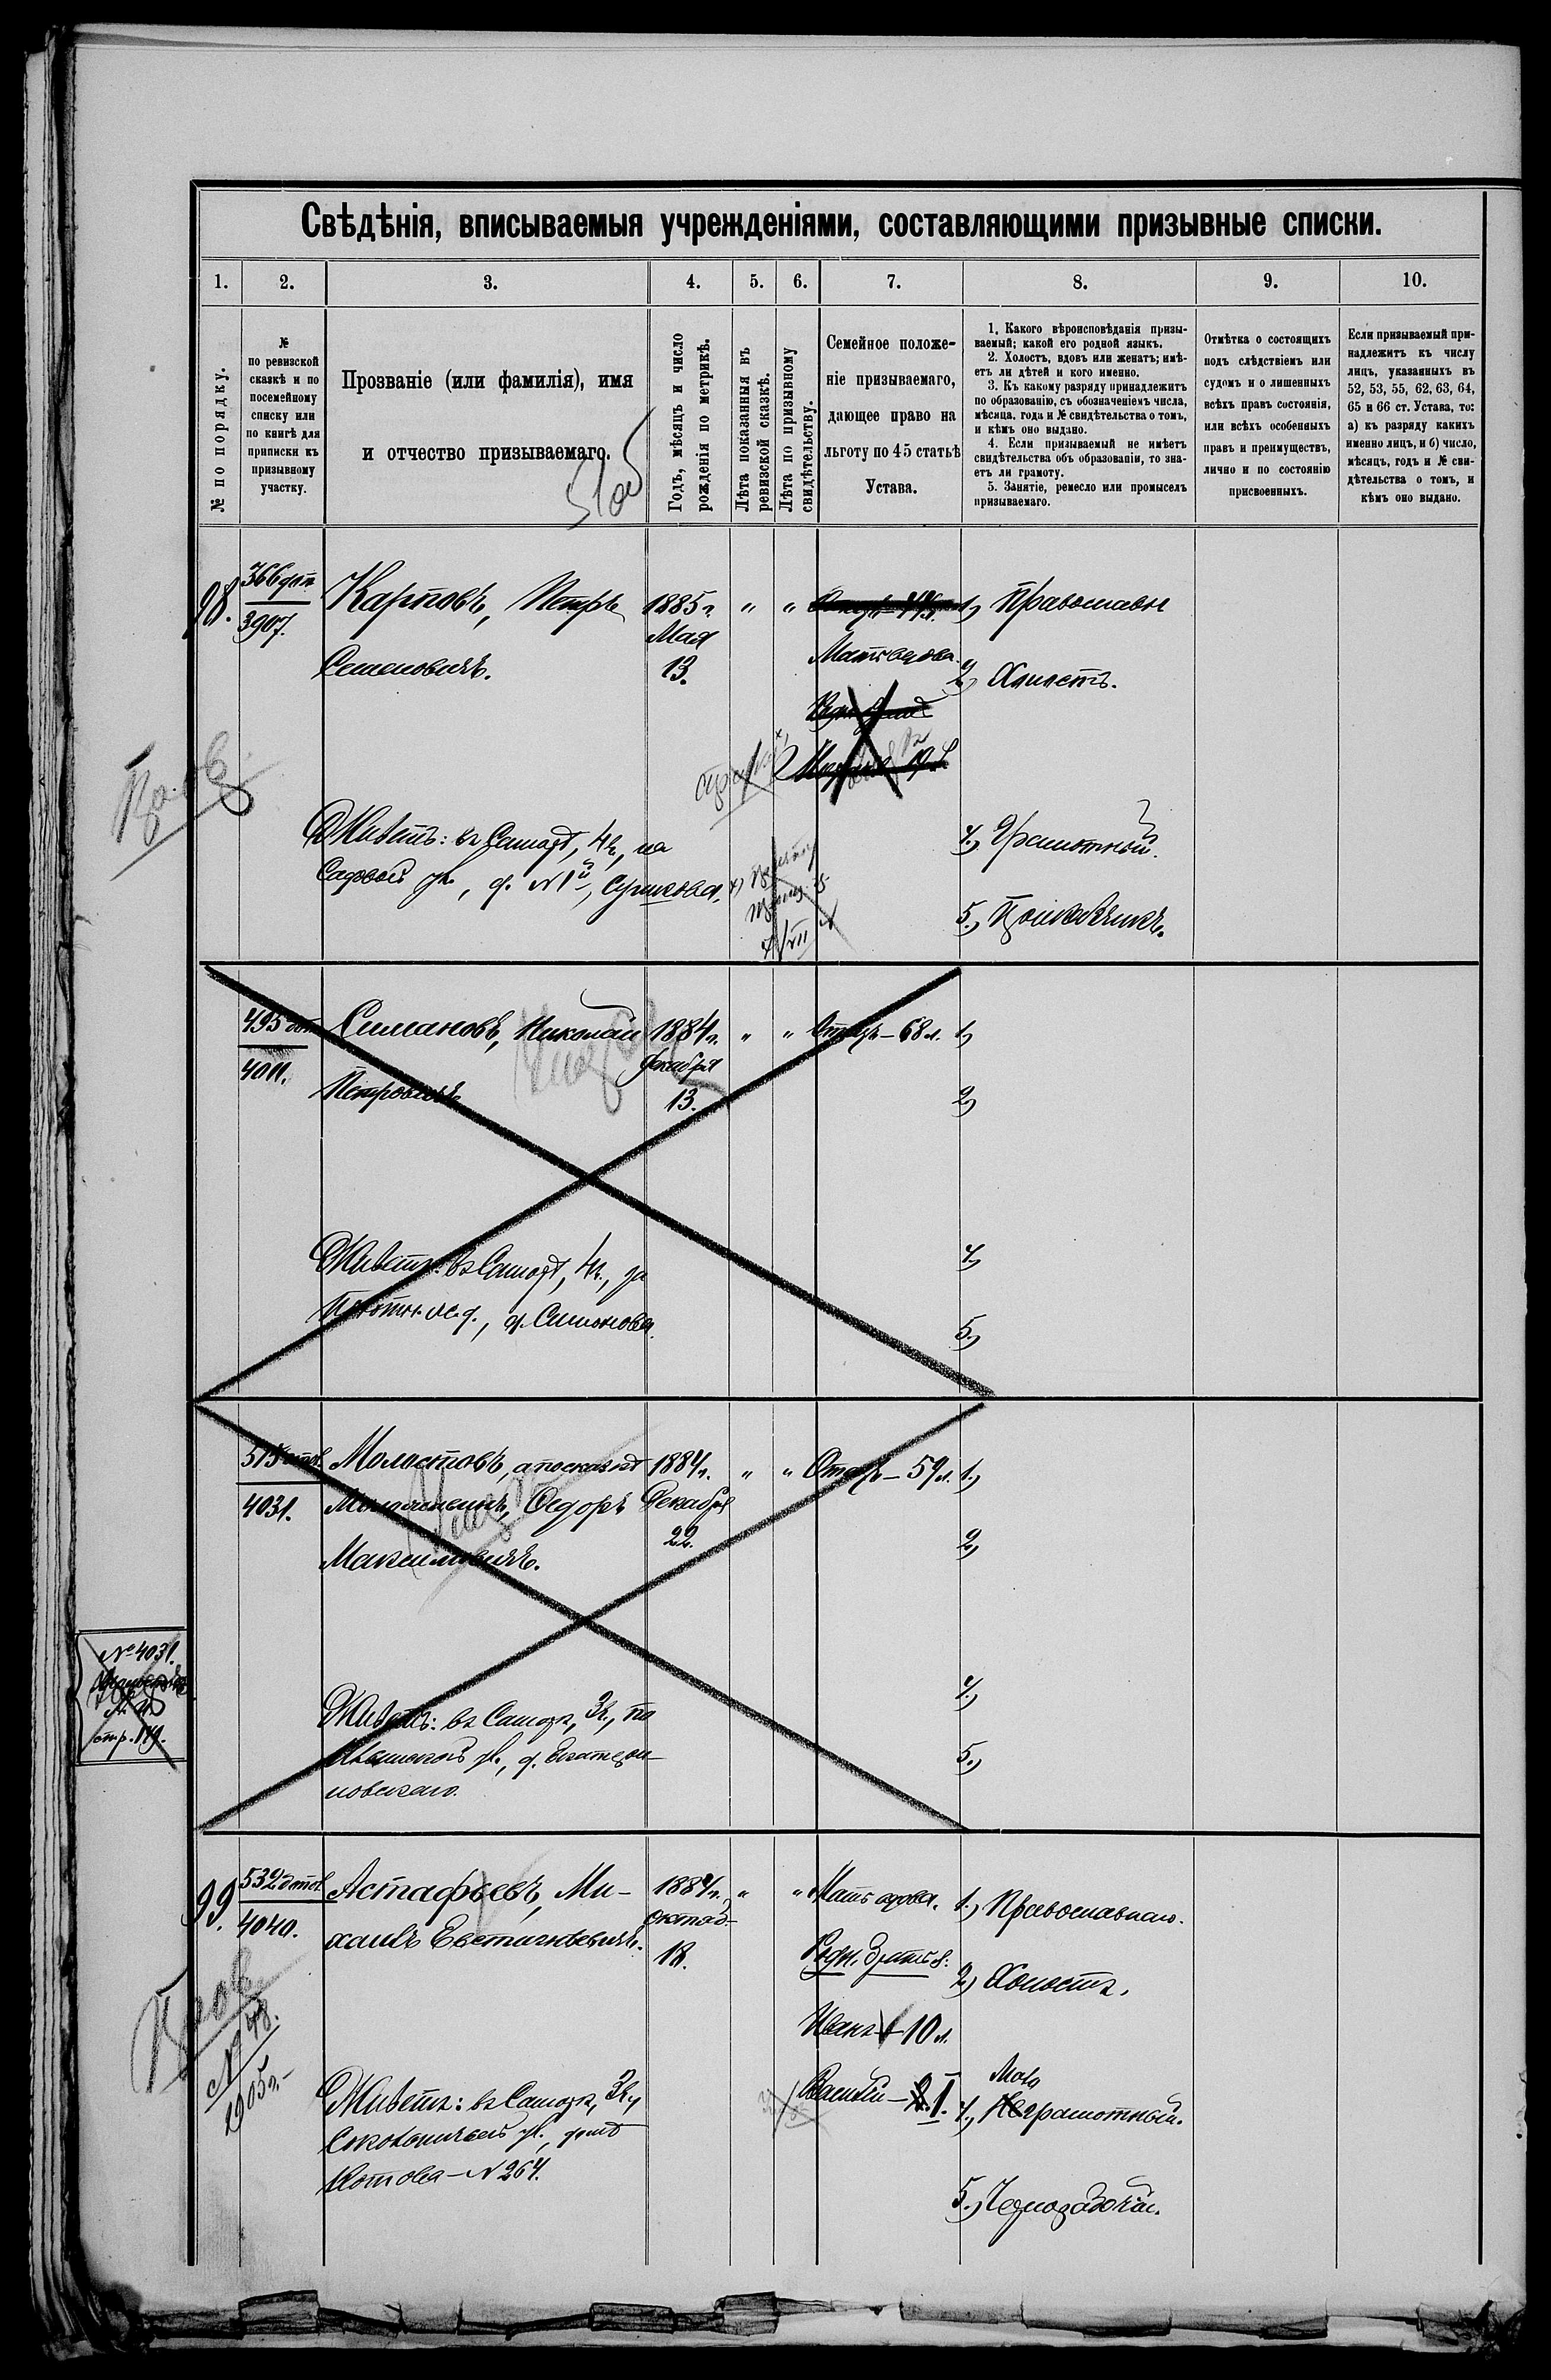 Свѣдѣнія, вписываемыя учрежденіями, составляющими призывные списки.
1. 2. 3. 4. 5. 6. 7. 8. 9. 10.
№ по порядку.
№
по ревизской
сказкѣ и по
посемейному
списку или
по книгѣ для
приписки къ
призывному
участку.
Прозваніе (или фамилія), имя
и отчество призываемаго.
Годъ, мѣсяцъ и число
рожденія по метрикѣ.
Лѣта показанныя въ
ревизской сказкѣ.
Лѣта по призывному
свидѣтельству.
Семейное положе-
ніе призываемаго,
дающее право на
льготу по 45 статьѣ
Устава.
1. Какого вѣроисповѣданія призы-
ваемый; какой его родной языкъ.
2. Холостъ, вдовъ или женатъ; имѣ-
етъ ли дѣтей и кого именно.
3. Къ какому разряду принадлежитъ
по образованію, съ обозначеніемъ числа,
мѣсяца, года и № свидѣтельства о томъ,
и кѣмъ оно выдано.
4. Если призываемый не имѣетъ
свидѣтельства объ образованіи, то зна-
етъ ли грамоту.
5. Занятіе, ремесло или промыселъ
призываемаго.
Отмѣтка о состоящихъ
подъ слѣдствіемъ или
судомъ и о лишенныхъ
всѣхъ правъ состоянія,
или всѣхъ особенныхъ
правъ и преимуществъ,
лично и по состоянію
присвоенныхъ.
Если призываемый при-
надлежитъ къ числу
лицъ, указанныхъ въ
52, 53, 55, 62, 63, 64,
65 и 66 ст. Устава, то:
а) къ разряду какихъ
именно лицъ, и б) число,
мѣсяцъ, годъ и № сви-
дѣтельства о томъ, и
кѣмъ оно выдано.
98. 366 3907. Карповъ, Петръ 1885 г. " " 1.) Православн
Мая
Семеновичъ. 13. Мать вдова. 2.) Холостъ.
Живетъ: въ Самарѣ, 4 ч., на 4.) Грамотный.
Садовой ул., д. №1й, Сушкова. 5.)
495 4011. Симановъ, Николай 1884 г. " " Отецъ – 68 л. 1)
Декабря
Петровичъ 13. 2)
Живетъ: въ Самарѣ, 4 ч., за 4)
д. Симонова. 5.)
515 4031. Молостовъ, а по сказкѣ 1884 г. " " Отецъ – 59 л. 1.)
Федоръ Декабря
22.
Максимовичъ. 2)
№ 4031.
стр. 149.
Живетъ: въ Самарѣ, 3 ч., по 4.)
ул., д. Екатери- 5.)
новскаго.
99. 532 4040. Астафьевъ, Ми- 1884 г. " " Мать вдова. 1.) Православнаго.
Октяб-
хаилъ Евстигнѣевичъ. 18. Родн. братья: 2) Холостъ.
№ 48.
1905 г. –
Иванъ – 10 л.
Василій – 4.) грамотный.
Живетъ: въ Самарѣ, 3 ч.,
ул., домъ
Котова – № 264.
5.) Чернорабочій.